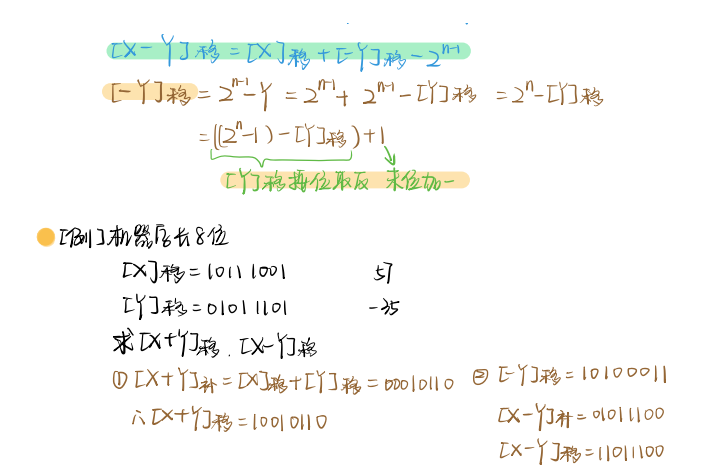 [X-Y]移 = [X]移 + [-Y]移 - 2^{n-1}
[-Y]移 = 2^{n-1} - Y = 2^{n-1} + 2^{n-1} - [Y]移 = 2^n - [Y]移
= ((2^n - 1) - [Y]移) + 1
[Y]移每位取反 末位加一
[例] 机器字长8位
[X]移 = 10111001 57
[Y]移 = 01011101 -35
求[X+Y]移. [X-Y]移
① [X+Y]补 = [X]移 + [Y]移 = 00010110
∴ [X+Y]移 = 10010110
② [-Y]移 = 10100011
[X-Y]补 = 01011100
[X-Y]移 = 11011100